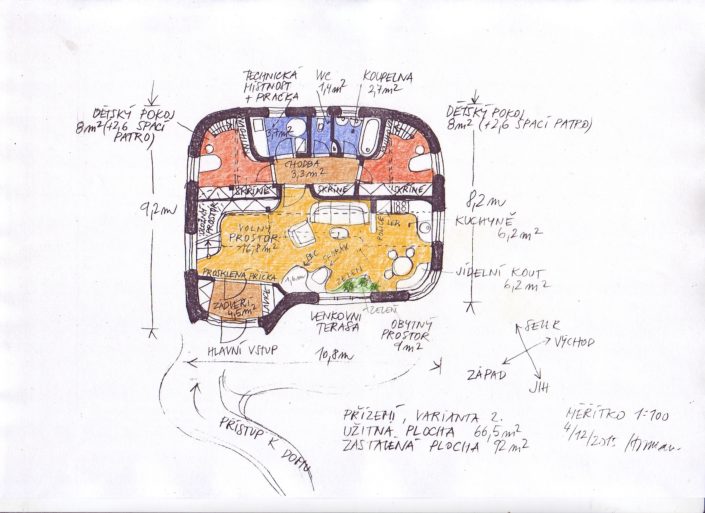 TECHNICKÁ
MÍSTNOST
+ PRAČKA
WC
1,4m²
KOUPELNA
2,7m²
DĚTSKÝ POKOJ
8m² (+2,6 SPACÍ
PATRO)
DĚTSKÝ POKOJ
8m² (+2,6 SPACÍ PATRO)
3,7m²
CHODBA
3,3m²
SKŘÍNĚ
SKŘÍNĚ
SKŘÍNĚ
9,2m
8,2m
KUCHYNĚ
6,2m²
VOLNÝ
PROSTOR
16,8m²
JÍDELNÍ KOUT
6,2m²
PROSKLENÁ PŘÍČKA
ZELEŇ
ZÁDVEŘÍ
4,6m²
ZELEŇ
VENKOVNÍ
TERASA
OBYTNÝ
PROSTOR
9m²
HLAVNÍ VSTUP
10,8m
SEVER
VÝCHOD
ZÁPAD
JIH
PŘÍSTUP K DOMU
PŘÍZEMÍ, VARIANTA 2.
UŽITNÁ PLOCHA 66,5m²
ZASTAVĚNÁ PLOCHA 92m²
MĚŘÍTKO 1:100
4/12/2015